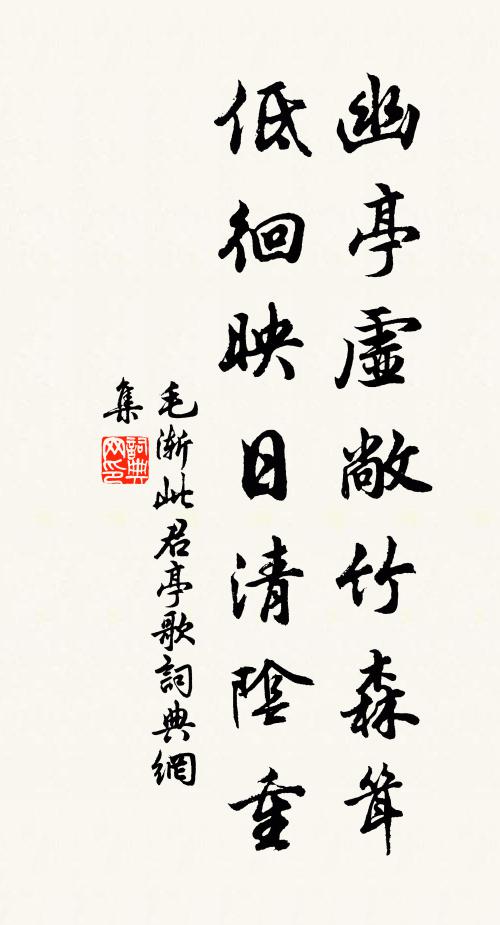 幽亭虛敞竹森聳
低徊映日清陰重
毛漸此君亭歌詞典網
集
詞典網印